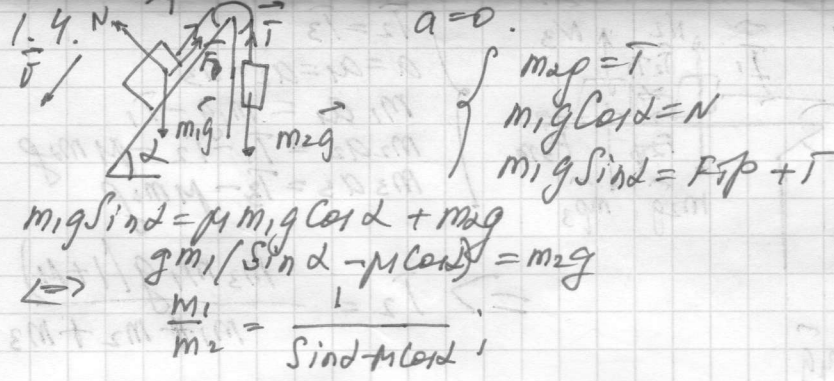 1.4. N T T a=0.
v Fтр m₂g = T
m₁g m₂g m₁g Cosα = N
α m₁g Sinα = Fтр + T
m₁g Sinα = μ m₁g Cosα + m₂g
g m₁ (Sinα - μ Cosα) = m₂g
<=>
m₁/m₂ = 1/(Sinα - μ Cosα) ;